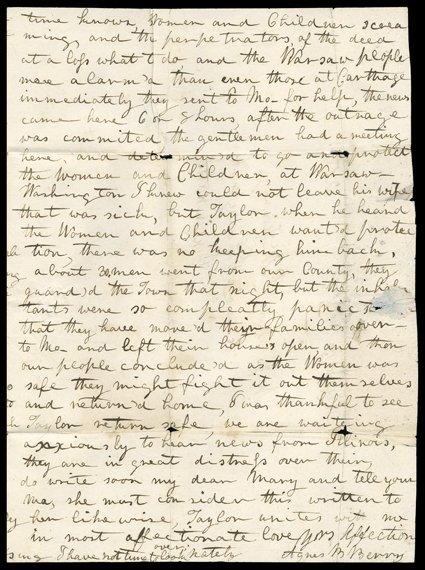 time known, Women and Children screa
ming, and the perpetrators of the deed
at a loss what to do and the Warsaw people
more alarm'd than even those at Carthage
immediately they sent to Mo- for help, the news
came here 6 or 8 hours after the outrage
was commited the gentlemen had a meeting
here, and determined to go and protect
the Women and Children at Warsaw-
Washington I knew could not leave his wife
that was sick, but Taylor when he heard
the Women and Children want'd protec
tion, there was no keeping him back,
about men went from our County, they
guard'd the Town that night, but the inhabi
tants were so compleatly panic
that they have move'd their families over-
to Mo- and left their houses open and then
our people conclude'd as the Women was
safe they might fight it out themselves
and return'd home, I was thankful to see
Taylor return safe we are waiteing
anxiously to hear news from Illinois,-
they are in great distress over their,
do write soon my dear Mary and tell your
Ma, she must consider this written to
her likewise, Taylor unites wit me
in most affectionate love yors Affection
I have not time to look over nately Agnes B Berry